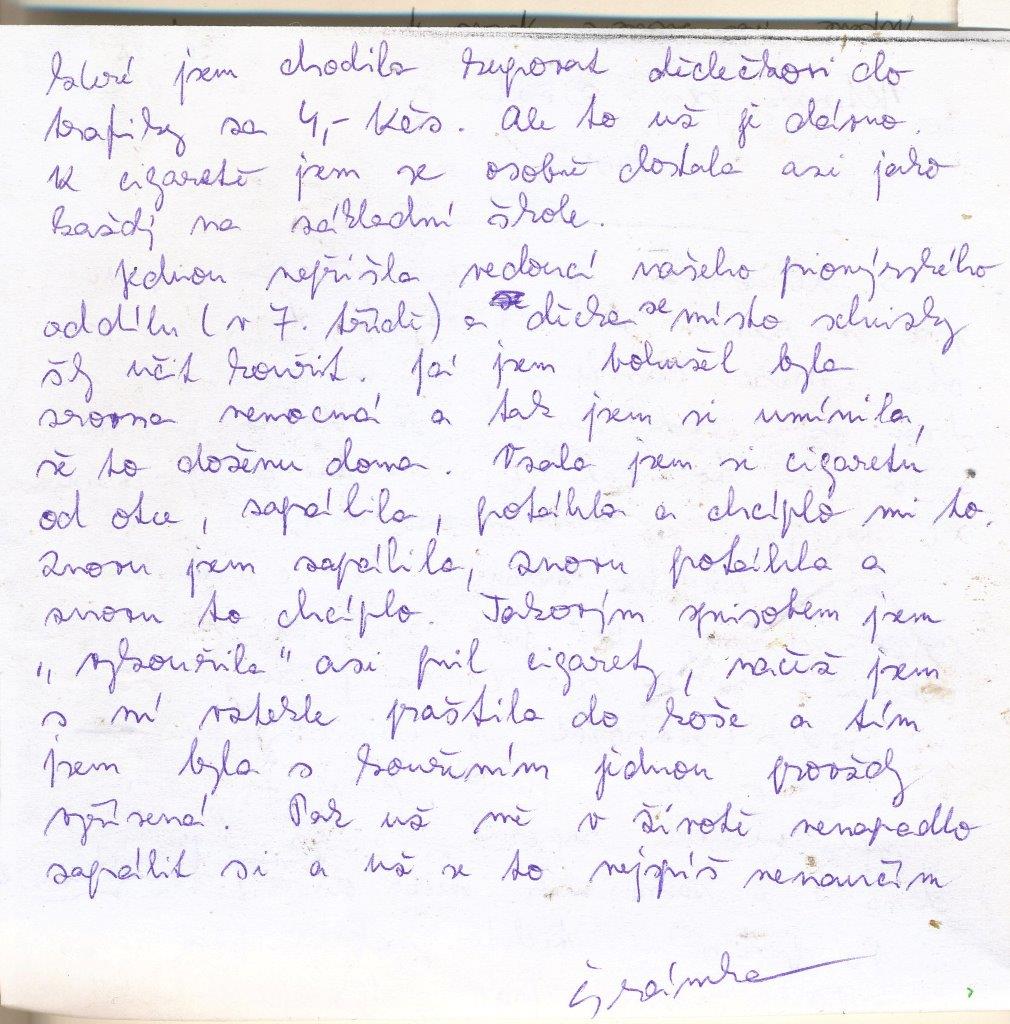 které jsem chodila kupovat dědečkovi do
trafiky za 4,- Kčs. Ale to už je dávno.
K cigaretě jsem se osobně dostala asi jako
každý na základní škole.
Jednou nepřišla vedoucí našeho pionýrského
oddílu (v 7. třídě) a děcka se místo schůzky
šly učit kouřit. Já jsem bohužel byla
zrovna nemocná a tak jsem si umínila,
že to doženu doma. Vzala jsem si cigaretu
od otce, zapálila, potáhla a chcíplo mi to.
Znovu jsem zapálila, znovu potáhla a
znovu to chcíplo. Takovým způsobem jsem
„vykouřila" asi půl cigarety, načež jsem
s ní vztekle praštila do koše a tím
jsem byla s kouřením jednou provždy
vyřízená. Pak už mě v životě nenapadlo
zapálit si a už se to nejspíš nenaučím